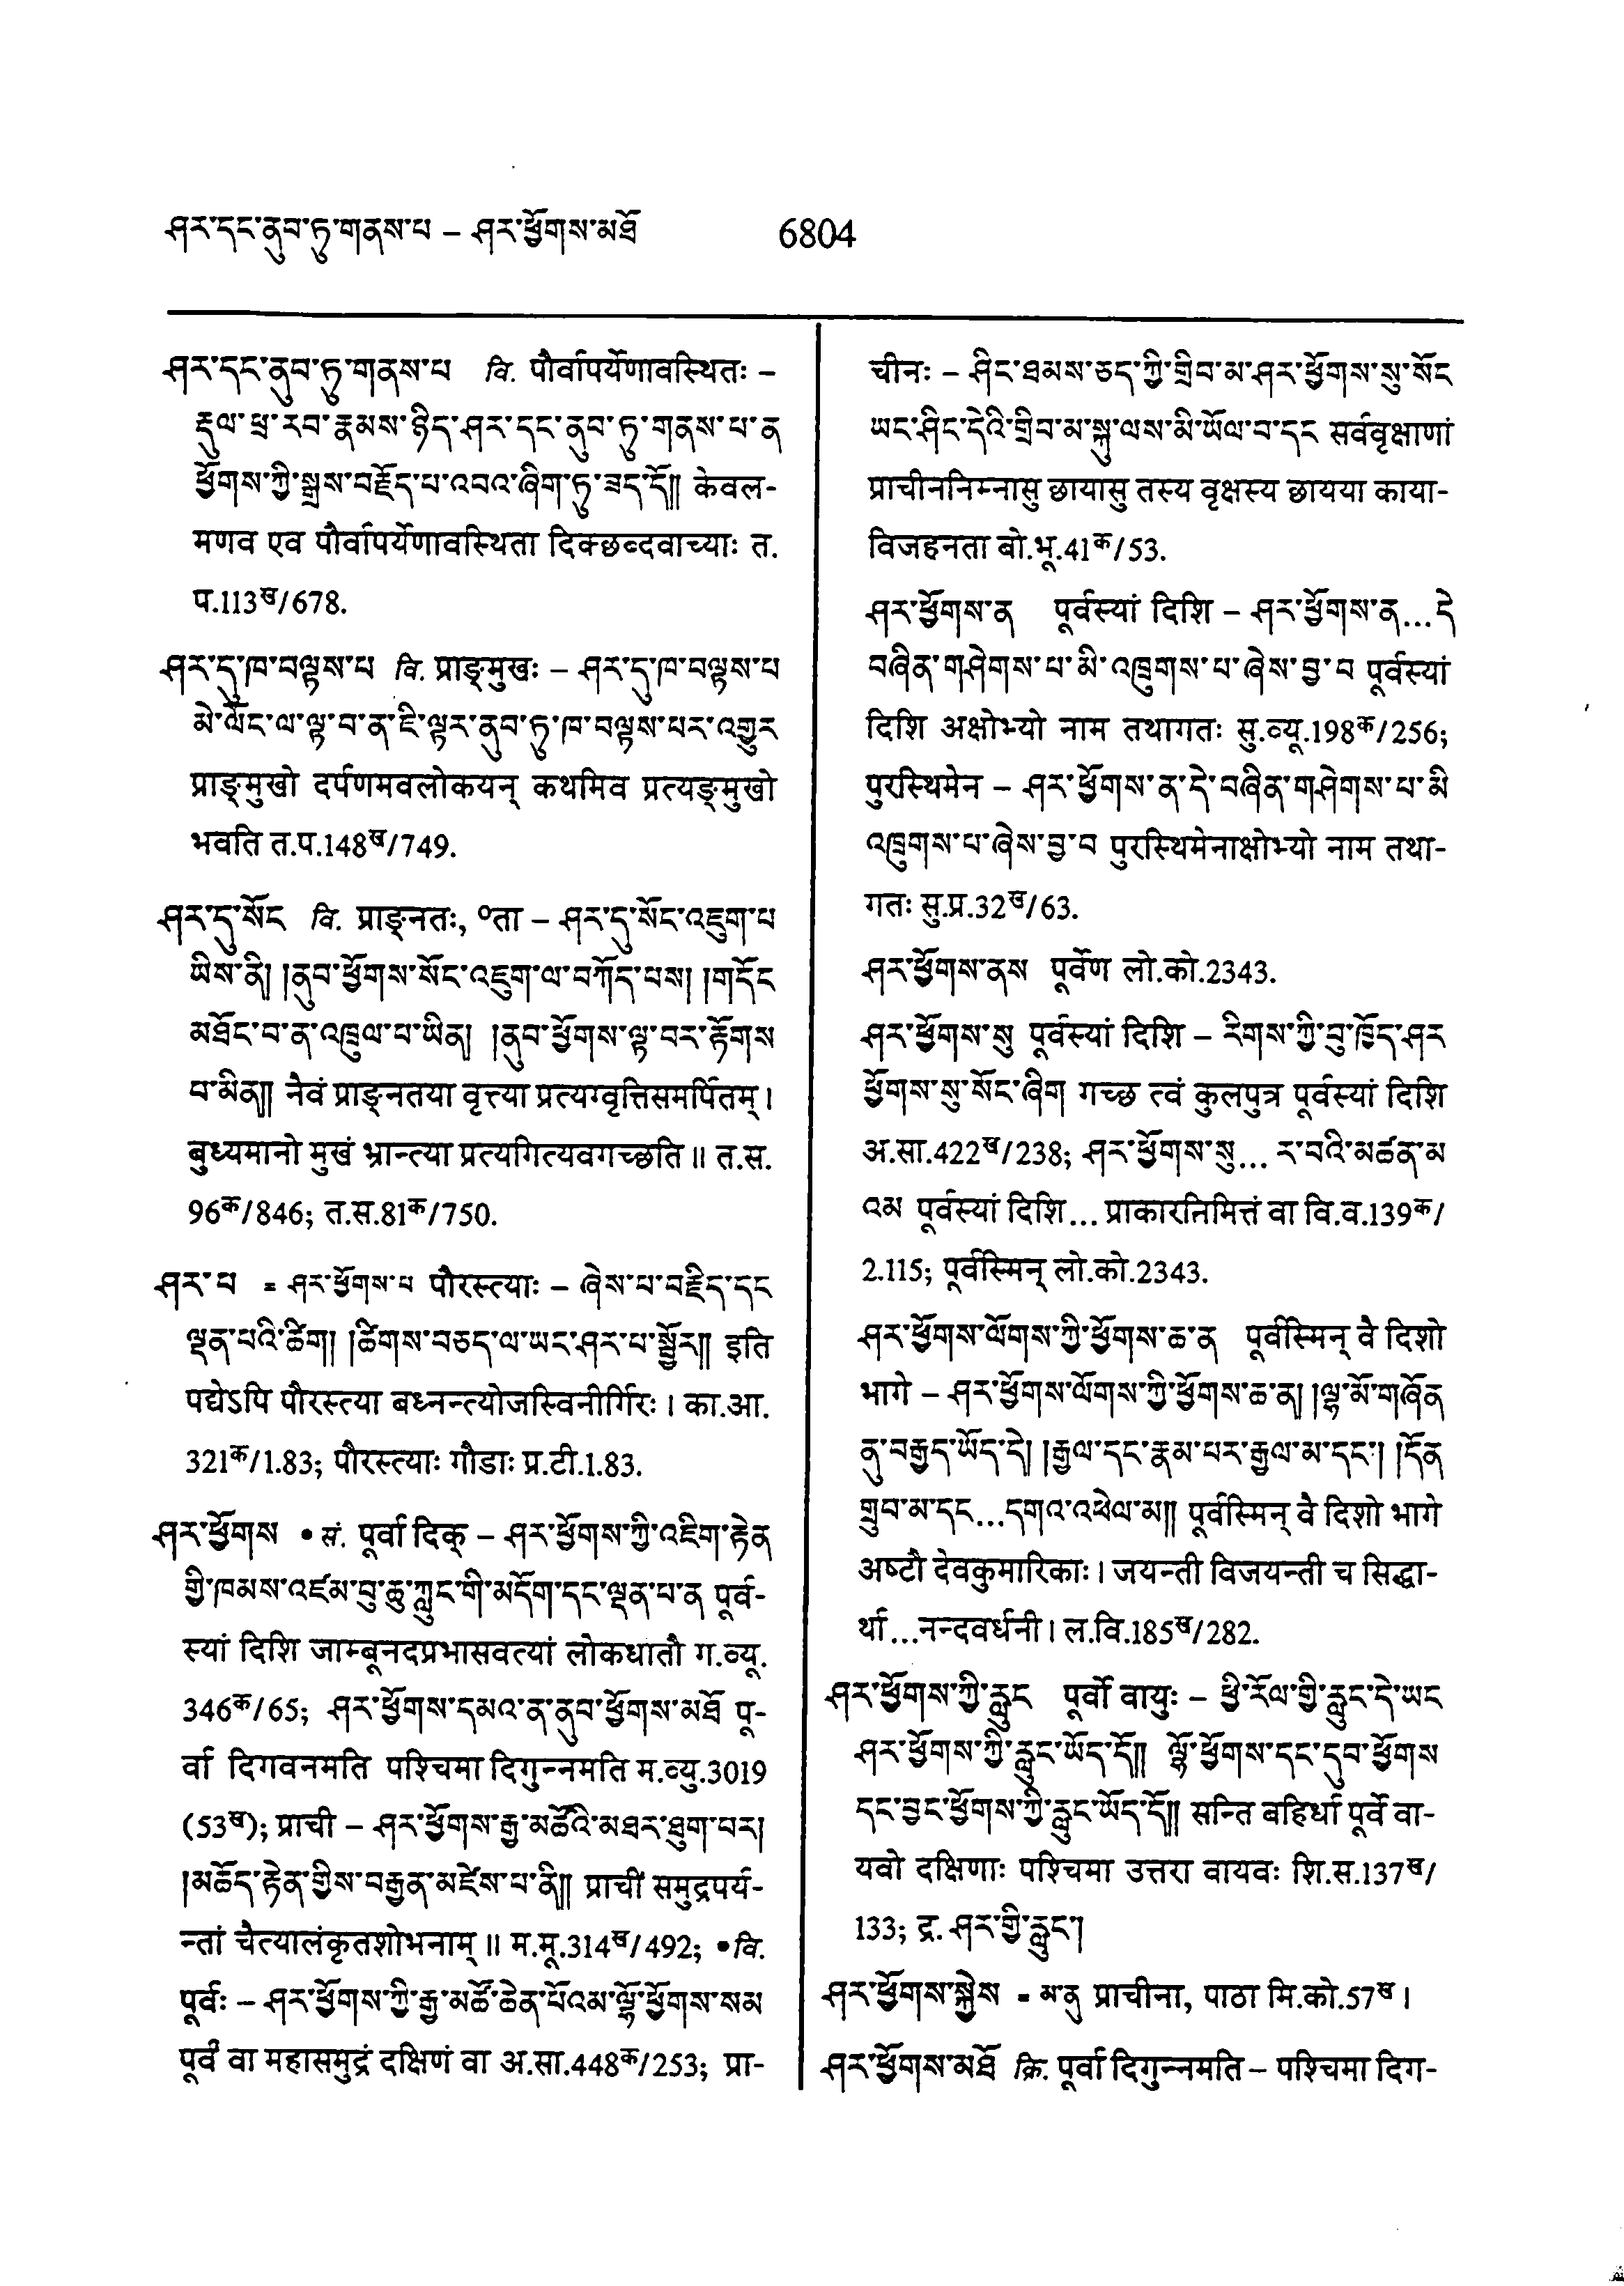 ཤར་དང་ནུབ་ཏུ་གནས་པ – ཤར་ཕྱོགས་མཐོ 6804
ཤར་དང་ནུབ་ཏུ་གནས་པ वि. पौर्वापर्येणावस्थितः –
རྡུལ་ཕྲ་རབ་རྣམས་ཉིད་ཤར་དང་ནུབ་ཏུ་གནས་པ་ན
ཕྱོགས་ཀྱི་སྒྲས་བརྗོད་པ་འབའ་ཞིག་ཏུ་ཟད་དོ།། केवल-
मणव एव पौर्वापर्येणावस्थिता दिक्छब्दवाच्याः त.
प.113ख/678.
ཤར་དུ་ཁ་བལྟས་པ वि. प्राङ्मुखः – ཤར་དུ་ཁ་བལྟས་པ
མེ་ལོང་ལ་ལྟ་བ་ན་ཇི་ལྟར་ནུབ་ཏུ་ཁ་བལྟས་པར་འགྱུར
प्राङ्मुखो दर्पणमवलोकयन् कथमिव प्रत्यङ्मुखो
भवति त.प.148ख/749.
ཤར་དུ་སོང वि. प्राङ्नतः, ॰ता – ཤར་དུ་སོང་འཇུག་པ
ཡིས་ནི། །ནུབ་ཕྱོགས་སོང་འཇུག་ལ་བཀོད་པས། །གདོང
མཐོང་བ་ན་འཁྲུལ་པ་ཡིན། །ནུབ་ཕྱོགས་ལྟ་བར་རྟོགས
པ་མིན།། नैवं प्राङ्नतया वृत्त्या प्रत्यग्वृत्तिसमर्पितम् ।
बुध्यमानो मुखं भ्रान्त्या प्रत्यगित्यवगच्छति ॥ त.स.
96क/846; त.स.81क/750.
ཤར་པ = ཤར་ཕྱོགས་པ पौरस्त्याः – ཞེས་པ་བརྗིད་དང
ལྡན་པའི་ཚིག། །ཚིགས་བཅད་ལ་ཡང་ཤར་པ་སྦྱོར།། इति
पद्येऽपि पौरस्त्या बध्नन्त्योजस्विनीर्गिरः । का.आ.
321क/1.83; पौरस्त्याः गौडाः प्र.टी.1.83.
ཤར་ཕྱོགས • सं. पूर्वा दिक् – ཤར་ཕྱོགས་ཀྱི་འཇིག་རྟེན
གྱི་ཁམས་འཛམ་བུ་ཆུ་ཀླུང་གི་མདོག་དང་ལྡན་པ་ན पूर्व-
स्यां दिशि जाम्बूनदप्रभासवत्यां लोकधातौ ग.व्यू.
346क/65; ཤར་ཕྱོགས་དམའ་ན་ནུབ་ཕྱོགས་མཐོ पू-
र्वा दिगवनमति पश्चिमा दिगुन्नमति म.व्यु.3019
(53ख); प्राची – ཤར་ཕྱོགས་རྒྱ་མཚོའི་མཐར་ཐུག་པར།
།མཆོད་རྟེན་གྱིས་བརྒྱན་མཛེས་པ་ནི།། प्राचीं समुद्रपर्य-
न्तां चैत्यालंकृतशोभनाम् ॥ म.मू.314ख/492; • वि.
पूर्वः – ཤར་ཕྱོགས་ཀྱི་རྒྱ་མཚོ་ཆེན་པོའམ་ལྷོ་ཕྱོགས་སམ
पूर्वं वा महासमुद्रं दक्षिणं वा अ.सा.448क/253; प्रा-
चीनः – ཤིང་ཐམས་ཅད་ཀྱི་གྲིབ་མ་ཤར་ཕྱོགས་སུ་སོང
ཡང་ཤིང་དེའི་གྲིབ་མ་སྐུ་ལས་མི་ཡོལ་བ་དང सर्ववृक्षाणां
प्राचीननिम्नासु छायासु तस्य वृक्षस्य छायया काया-
विजहनता बो.भू.41क/53.
ཤར་ཕྱོགས་ན पूर्वस्यां दिशि – ཤར་ཕྱོགས་ན...དེ
བཞིན་གཤེགས་པ་མི་འཁྲུགས་པ་ཞེས་བྱ་བ पूर्वस्यां
दिशि अक्षोभ्यो नाम तथागतः सु.व्यू.198क/256;
पुरस्थिमेन – ཤར་ཕྱོགས་ན་དེ་བཞིན་གཤེགས་པ་མི
འཁྲུགས་པ་ཞེས་བྱ་བ पुरस्थिमेनाक्षोभ्यो नाम तथा-
गतः सु.प्र.32ख/63.
ཤར་ཕྱོགས་ནས पूर्वेण लो.को.2343.
ཤར་ཕྱོགས་སུ पूर्वस्यां दिशि – རིགས་ཀྱི་བུ་ཁྱོད་ཤར
ཕྱོགས་སུ་སོང་ཞིག गच्छ त्वं कुलपुत्र पूर्वस्यां दिशि
अ.सा.422ख/238; ཤར་ཕྱོགས་སུ... ར་བའི་མཚན་མ
འམ पूर्वस्यां दिशि... प्राकारनिमित्तं वा वि.व.139क/
2.115; पूर्वस्मिन् लो.को.2343.
ཤར་ཕྱོགས་ལོགས་ཀྱི་ཕྱོགས་ཆ་ན पूर्वस्मिन् वै दिशो
भागे – ཤར་ཕྱོགས་ལོགས་ཀྱི་ཕྱོགས་ཆ་ན། །ལྷ་མོ་གཞོན
ནུ་བརྒྱད་ཡོད་དེ། །རྒྱལ་དང་རྣམ་པར་རྒྱལ་མ་དང་། །དོན
གྲུབ་མ་དང...དགའ་འཕེལ་མ།། पूर्वस्मिन् वै दिशो भागे
अष्टौ देवकुमारिकाः । जयन्ती विजयन्ती च सिद्धा-
र्था ...नन्दवर्धनी । ल.वि.185ख/282.
ཤར་ཕྱོགས་ཀྱི་རླུང पूर्वो वायुः – ཕྱི་རོལ་གྱི་རླུང་དེ་ཡང
ཤར་ཕྱོགས་ཀྱི་རླུང་ཡོད་དོ།། ལྷོ་ཕྱོགས་དང་དུབ་ཕྱོགས
དང་བྱང་ཕྱོགས་ཀྱི་རླུང་ཡོད་དོ།། सन्ति बहिर्धा पूर्वे वा-
यवो दक्षिणाः पश्चिमा उत्तरा वायवः शि.स.137ख/
133; द्र. ཤར་གྱི་རླུང་།
ཤར་ཕྱོགས་སྐྱེས = མ་ནུ प्राचीना, पाठा मि.को.57ख ।
ཤར་ཕྱོགས་མཐོ क्रि. पूर्वा दिगुन्नमति – पश्चिमा दिग-